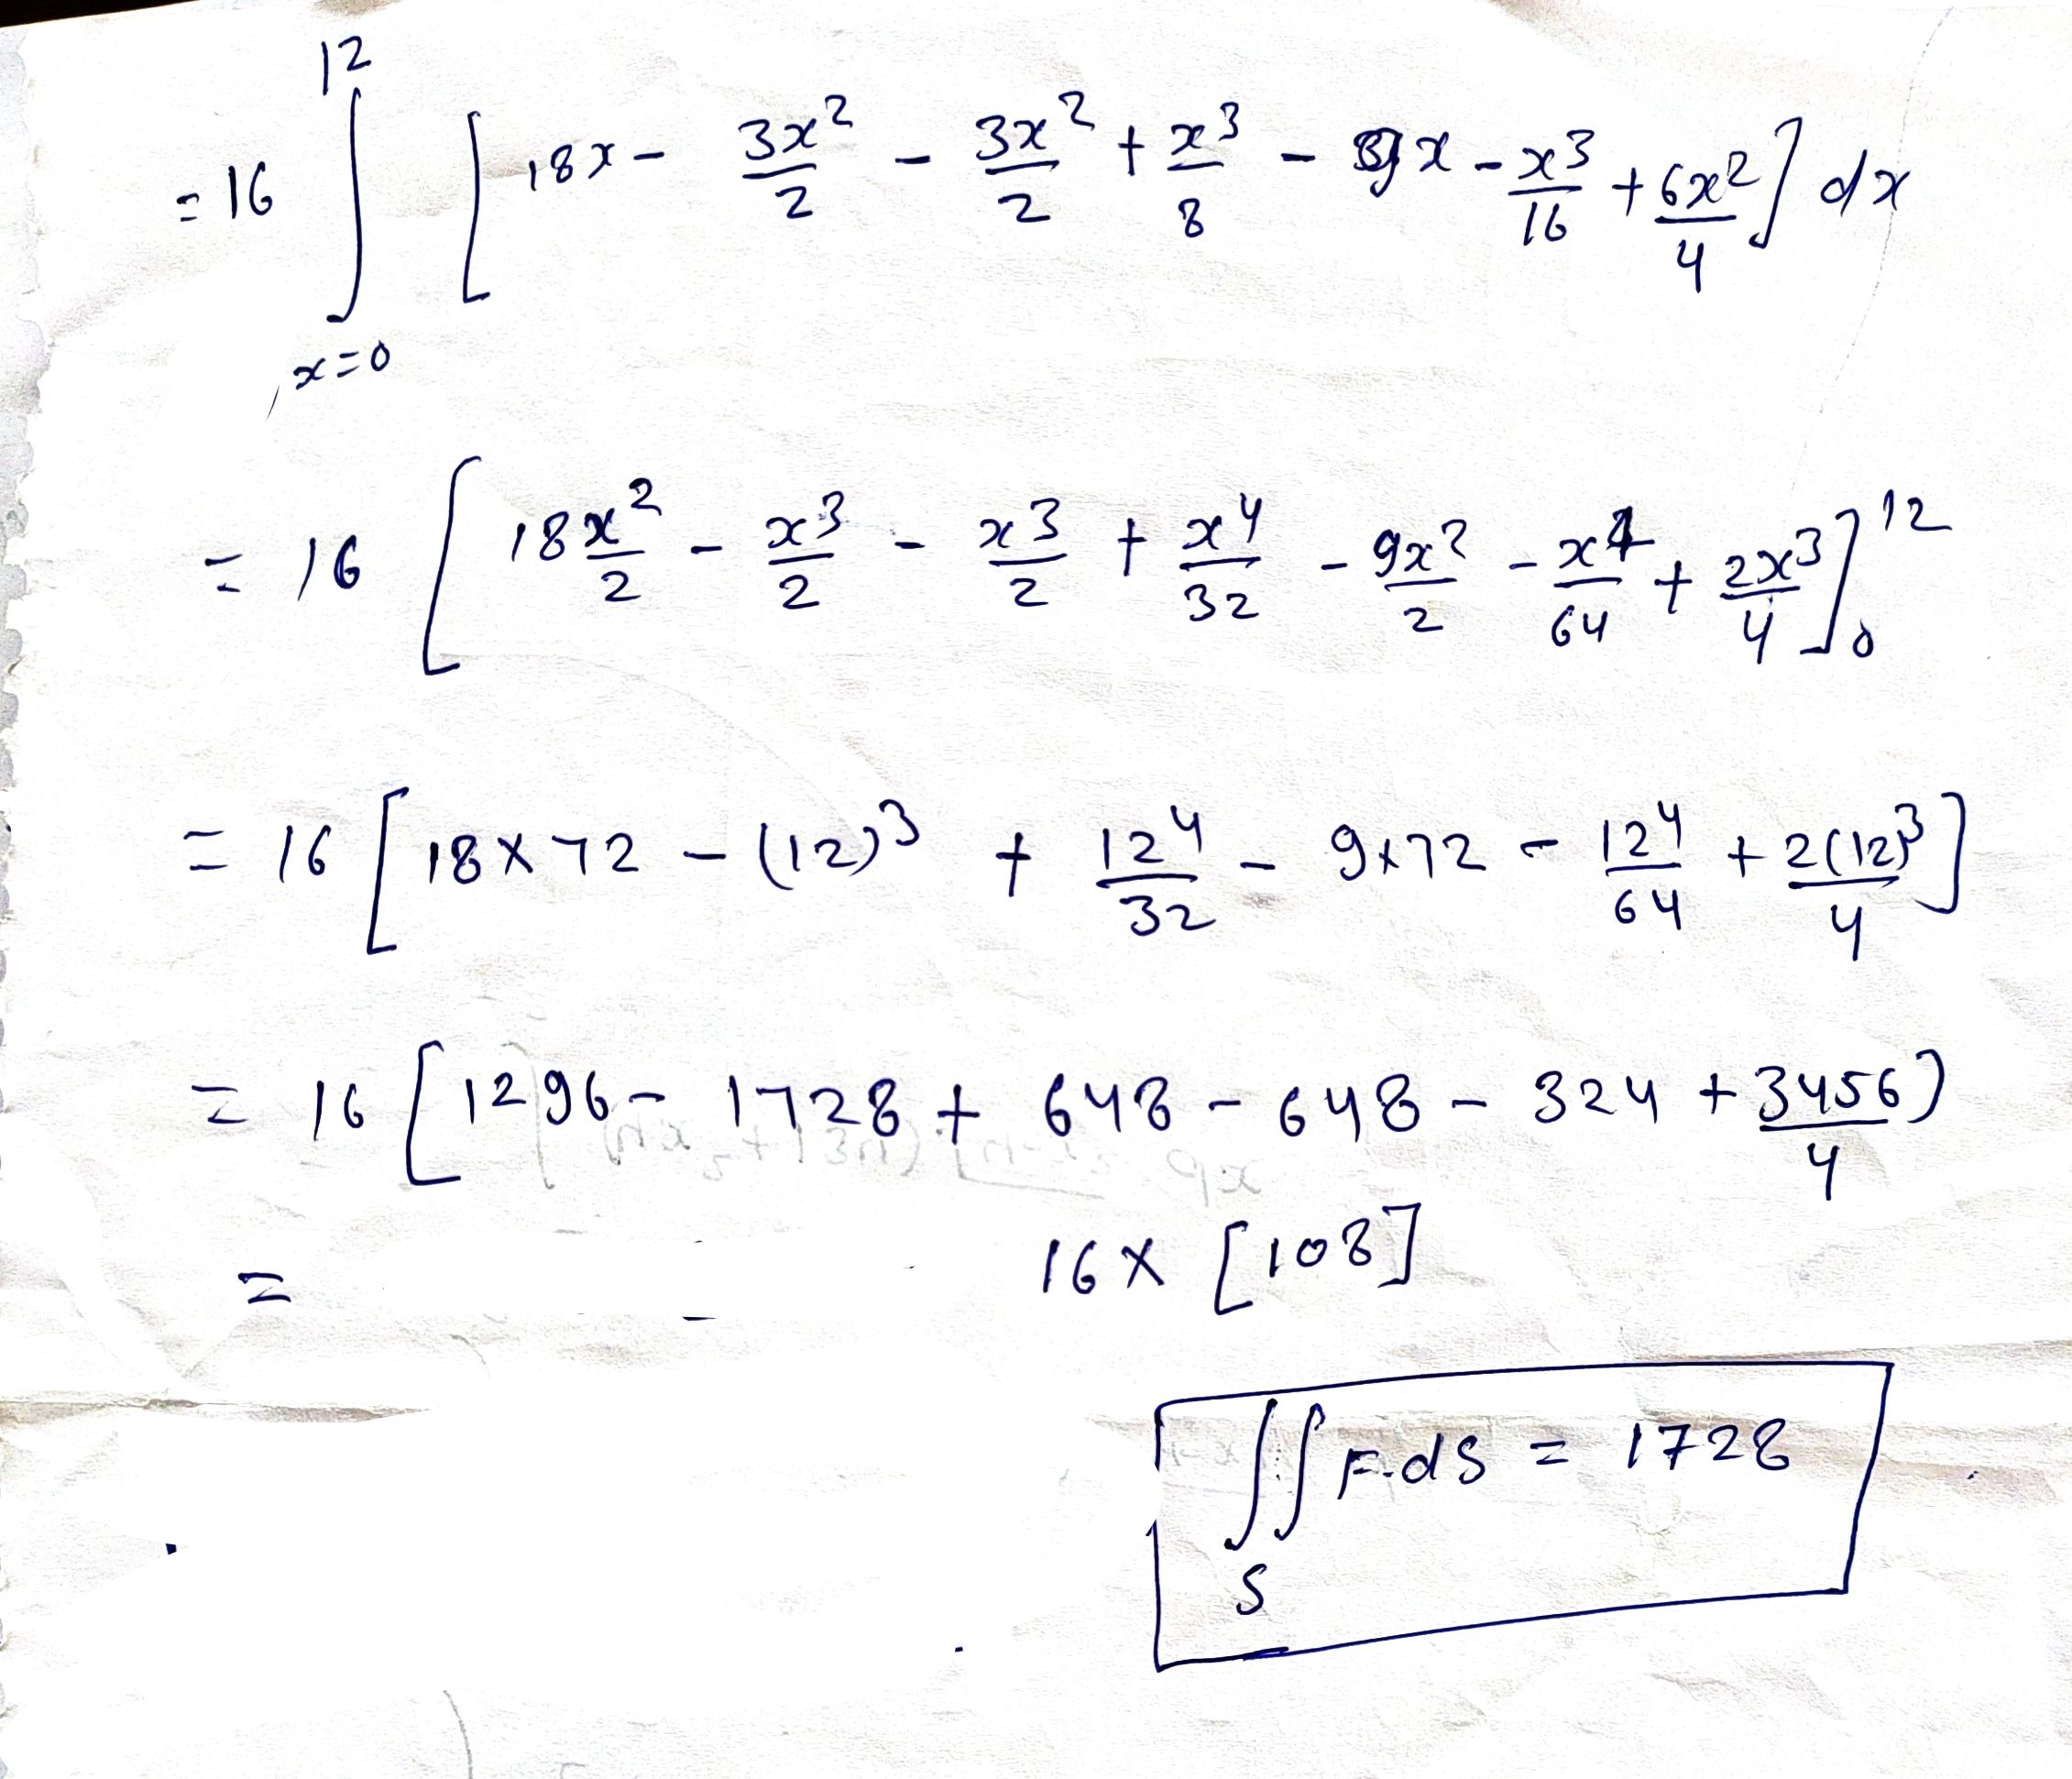 = 16 ∫_{x=0}^{12} [ 18x - 3x²/2 - 3x²/2 + x³/8 - 9x - x³/16 + 6x²/4 ] dx
= 16 [ 18x²/2 - x³/2 - x³/2 + x⁴/32 - 9x²/2 - x⁴/64 + 2x³/4 ]₀¹²
= 16 [ 18×72 - (12)³ + 12⁴/32 - 9×72 - 12⁴/64 + 2(12)³/4 ]
= 16 [ 1296 - 1728 + 648 - 648 - 324 + 3456/4 )
= 16 × [108]
∬_S F.dS = 1728